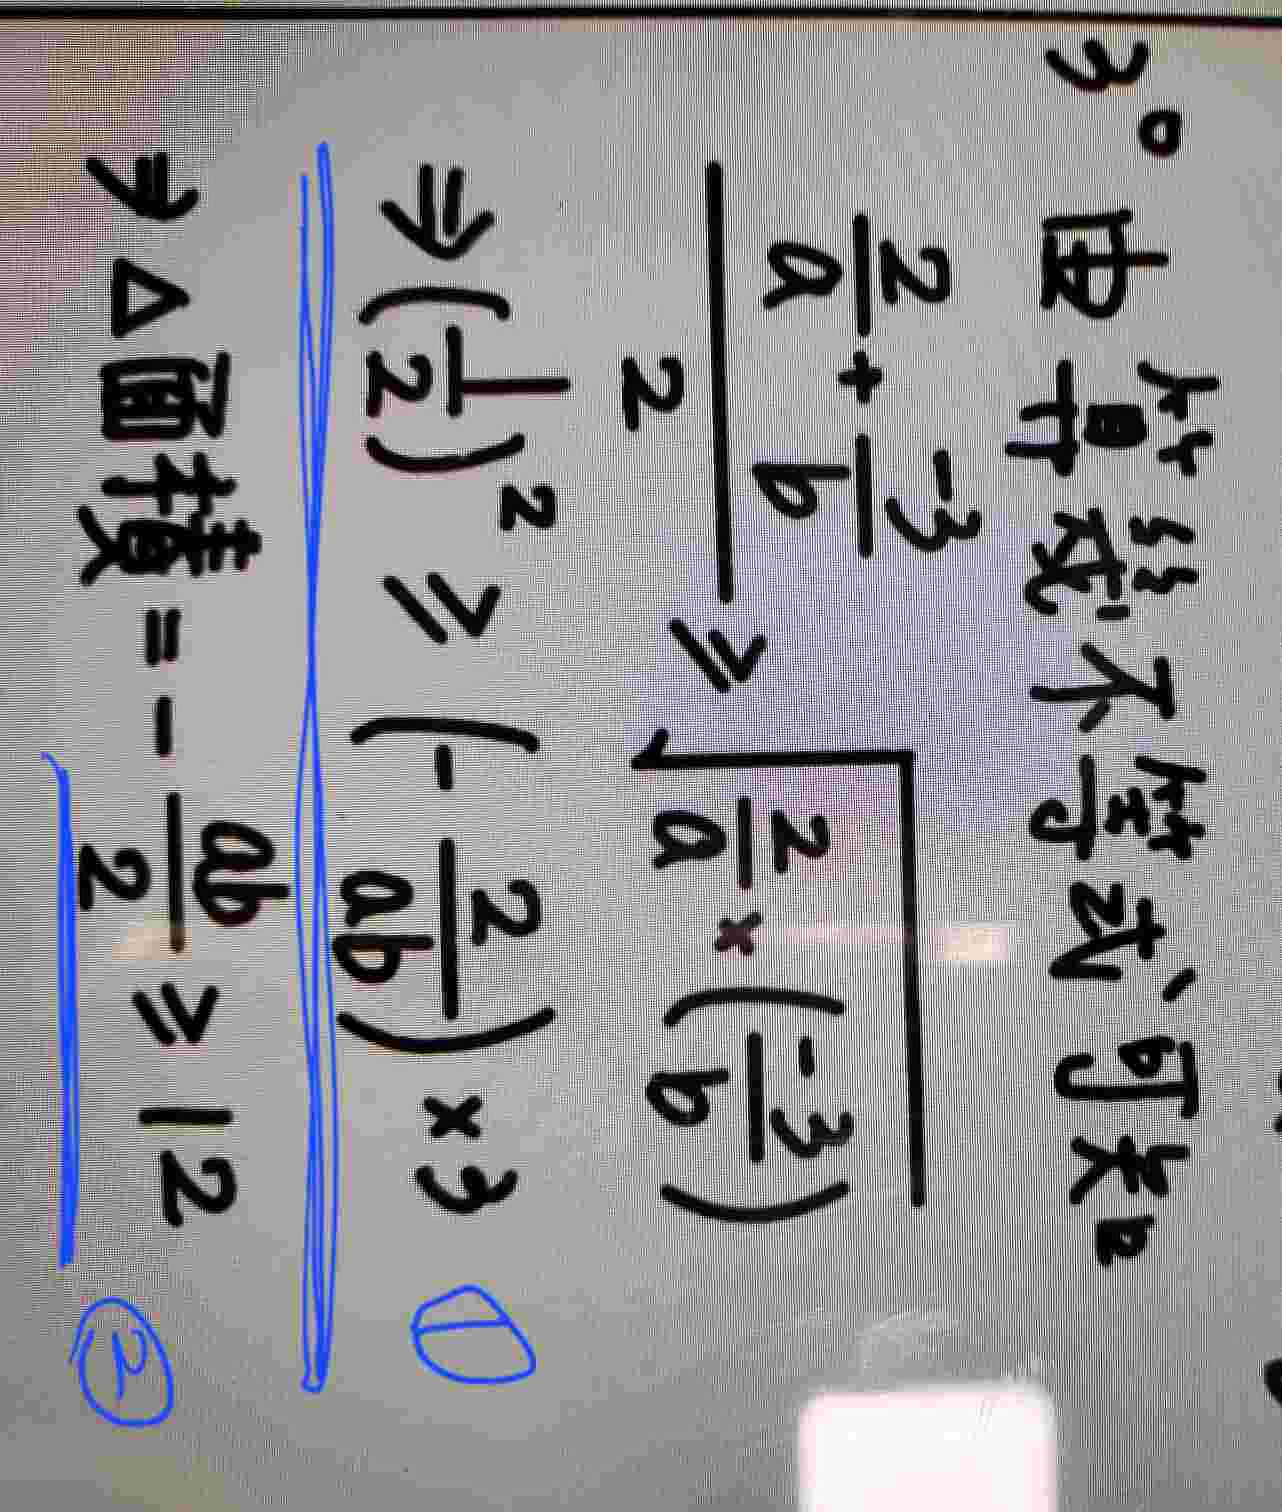 3° 由算幾不等式、可知
(2/a + -3/b)/2 ≥ √(2/a × (-3/b))
⇒ (1/2)² ≥ (-2/ab) × 3 ①
⇒ △面積 = -ab/2 ≥ 12 ②